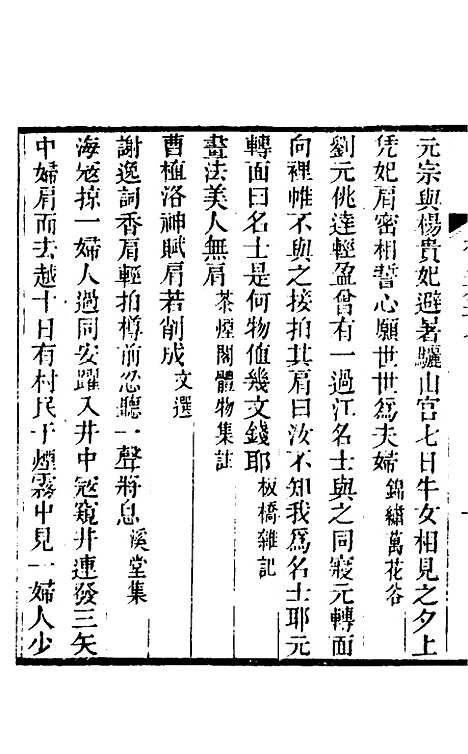 元宗與楊貴妃避暑驪山宮七日牛女相見之夕上
凭妃肩密相誓心願世世爲夫婦錦繡萬花谷
劉元佻達輕盈曾有一過江名士與之同寢元轉面
向裡帷不與之接拍其肩曰汝不知我爲名士耶元
轉面曰名士是何物値幾文錢耶板橋雜記
畫法美人無肩茶煙閣體物集註
曹植洛神賦肩若削成文選
謝逸詞香肩輕拍樽前忍聽一聲將息溪堂集
海寇掠一婦人過同安躍入井中寇窺井連發三矢
中婦肩而去越十日有村民于煙霧中見一婦人少